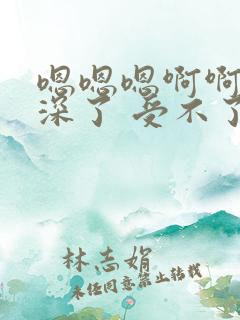 嗯嗯嗯啊啊
深了 受不了
林志娟
未经同意禁止转载